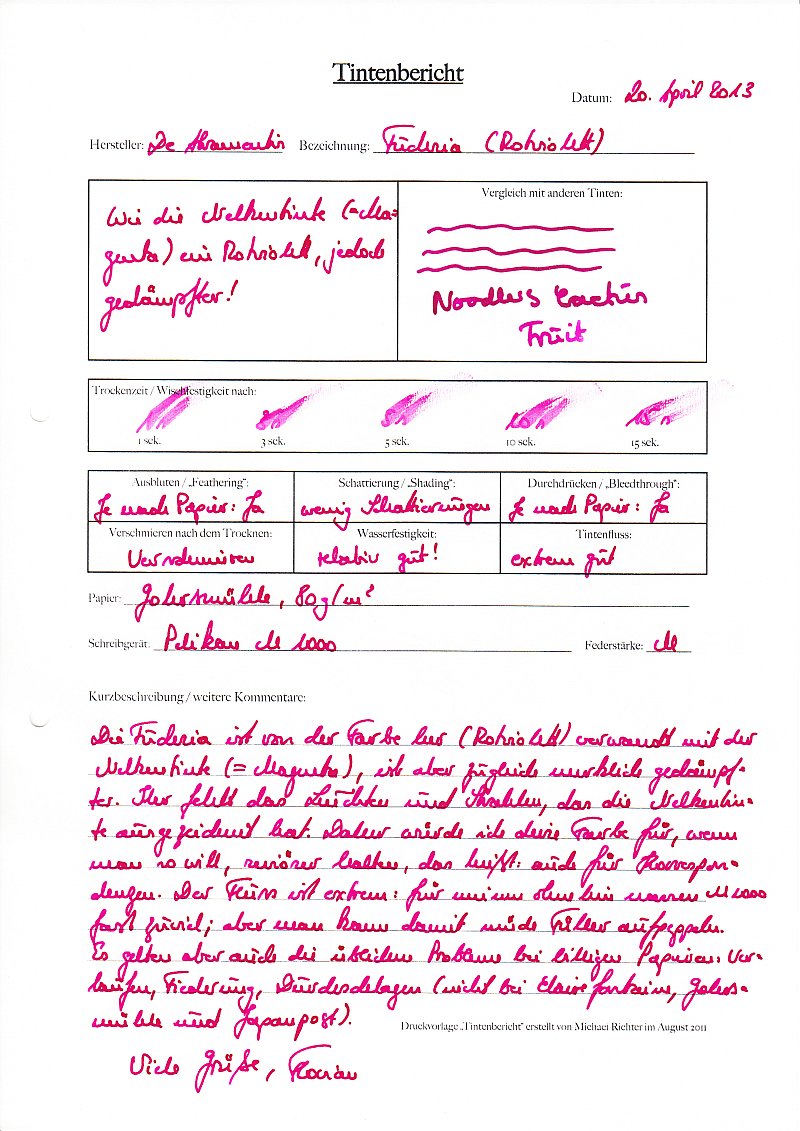 Tintenbericht
Datum: 20. April 2013
Hersteller: De Atramentis Bezeichnung: Füderia (Rotviolett)
Wie die Nelkentinte (=Ma=
genta) ein Rotviolett, jedoch
gedämpfter!
Vergleich mit anderen Tinten:
Noodlers Cactus
Fruit
Trockenzeit / Wischfestigkeit nach:
1 s 3 s 5 s 10 s 15 s
1 sek. 3 sek. 5 sek. 10 sek. 15 sek.
Ausbluten / „Feathering": Schattierung / „Shading": Durchdrücken / „Bleedthrough":
Je nach Papier: Ja wenig Schattierungen Je nach Papier: Ja
Verschmieren nach dem Trocknen: Wasserfestigkeit: Tintenfluss:
Verschmieren relativ gut! extrem gut
Papier: Gohrsmühle, 80g/m²
Schreibgerät: Pelikan M 1000 Federstärke: M
Kurzbeschreibung / weitere Kommentare:
Die Füderia ist von der Farbe her (Rotviolett) verwandt mit der
Nelkentinte (= Magenta), ist aber zugleich merklich gedämpf-
ter. Hier fehlt das Leuchten und Strahlen, das die Nelkentin-
te ausgezeichnet hat. Daher würde ich diese Farbe für, wenn
man so will, seriöser halten, das heißt: auch für Korrespon-
denzen. Der Fluss ist extrem: für meinen ohnehin nassen M 1000
fast zuviel; aber man kann damit müde Füller aufpeppeln.
Es gelten aber auch die üblichen Probleme bei billigen Papieren: Ver-
laufen, Fiederung, Durchschlagen (nicht bei Clairefontaine, Gohrs-
mühle und Japanpost).
Druckvorlage „Tintenbericht" erstellt von Michael Richter im August 2011
Viele Grüße, Florian